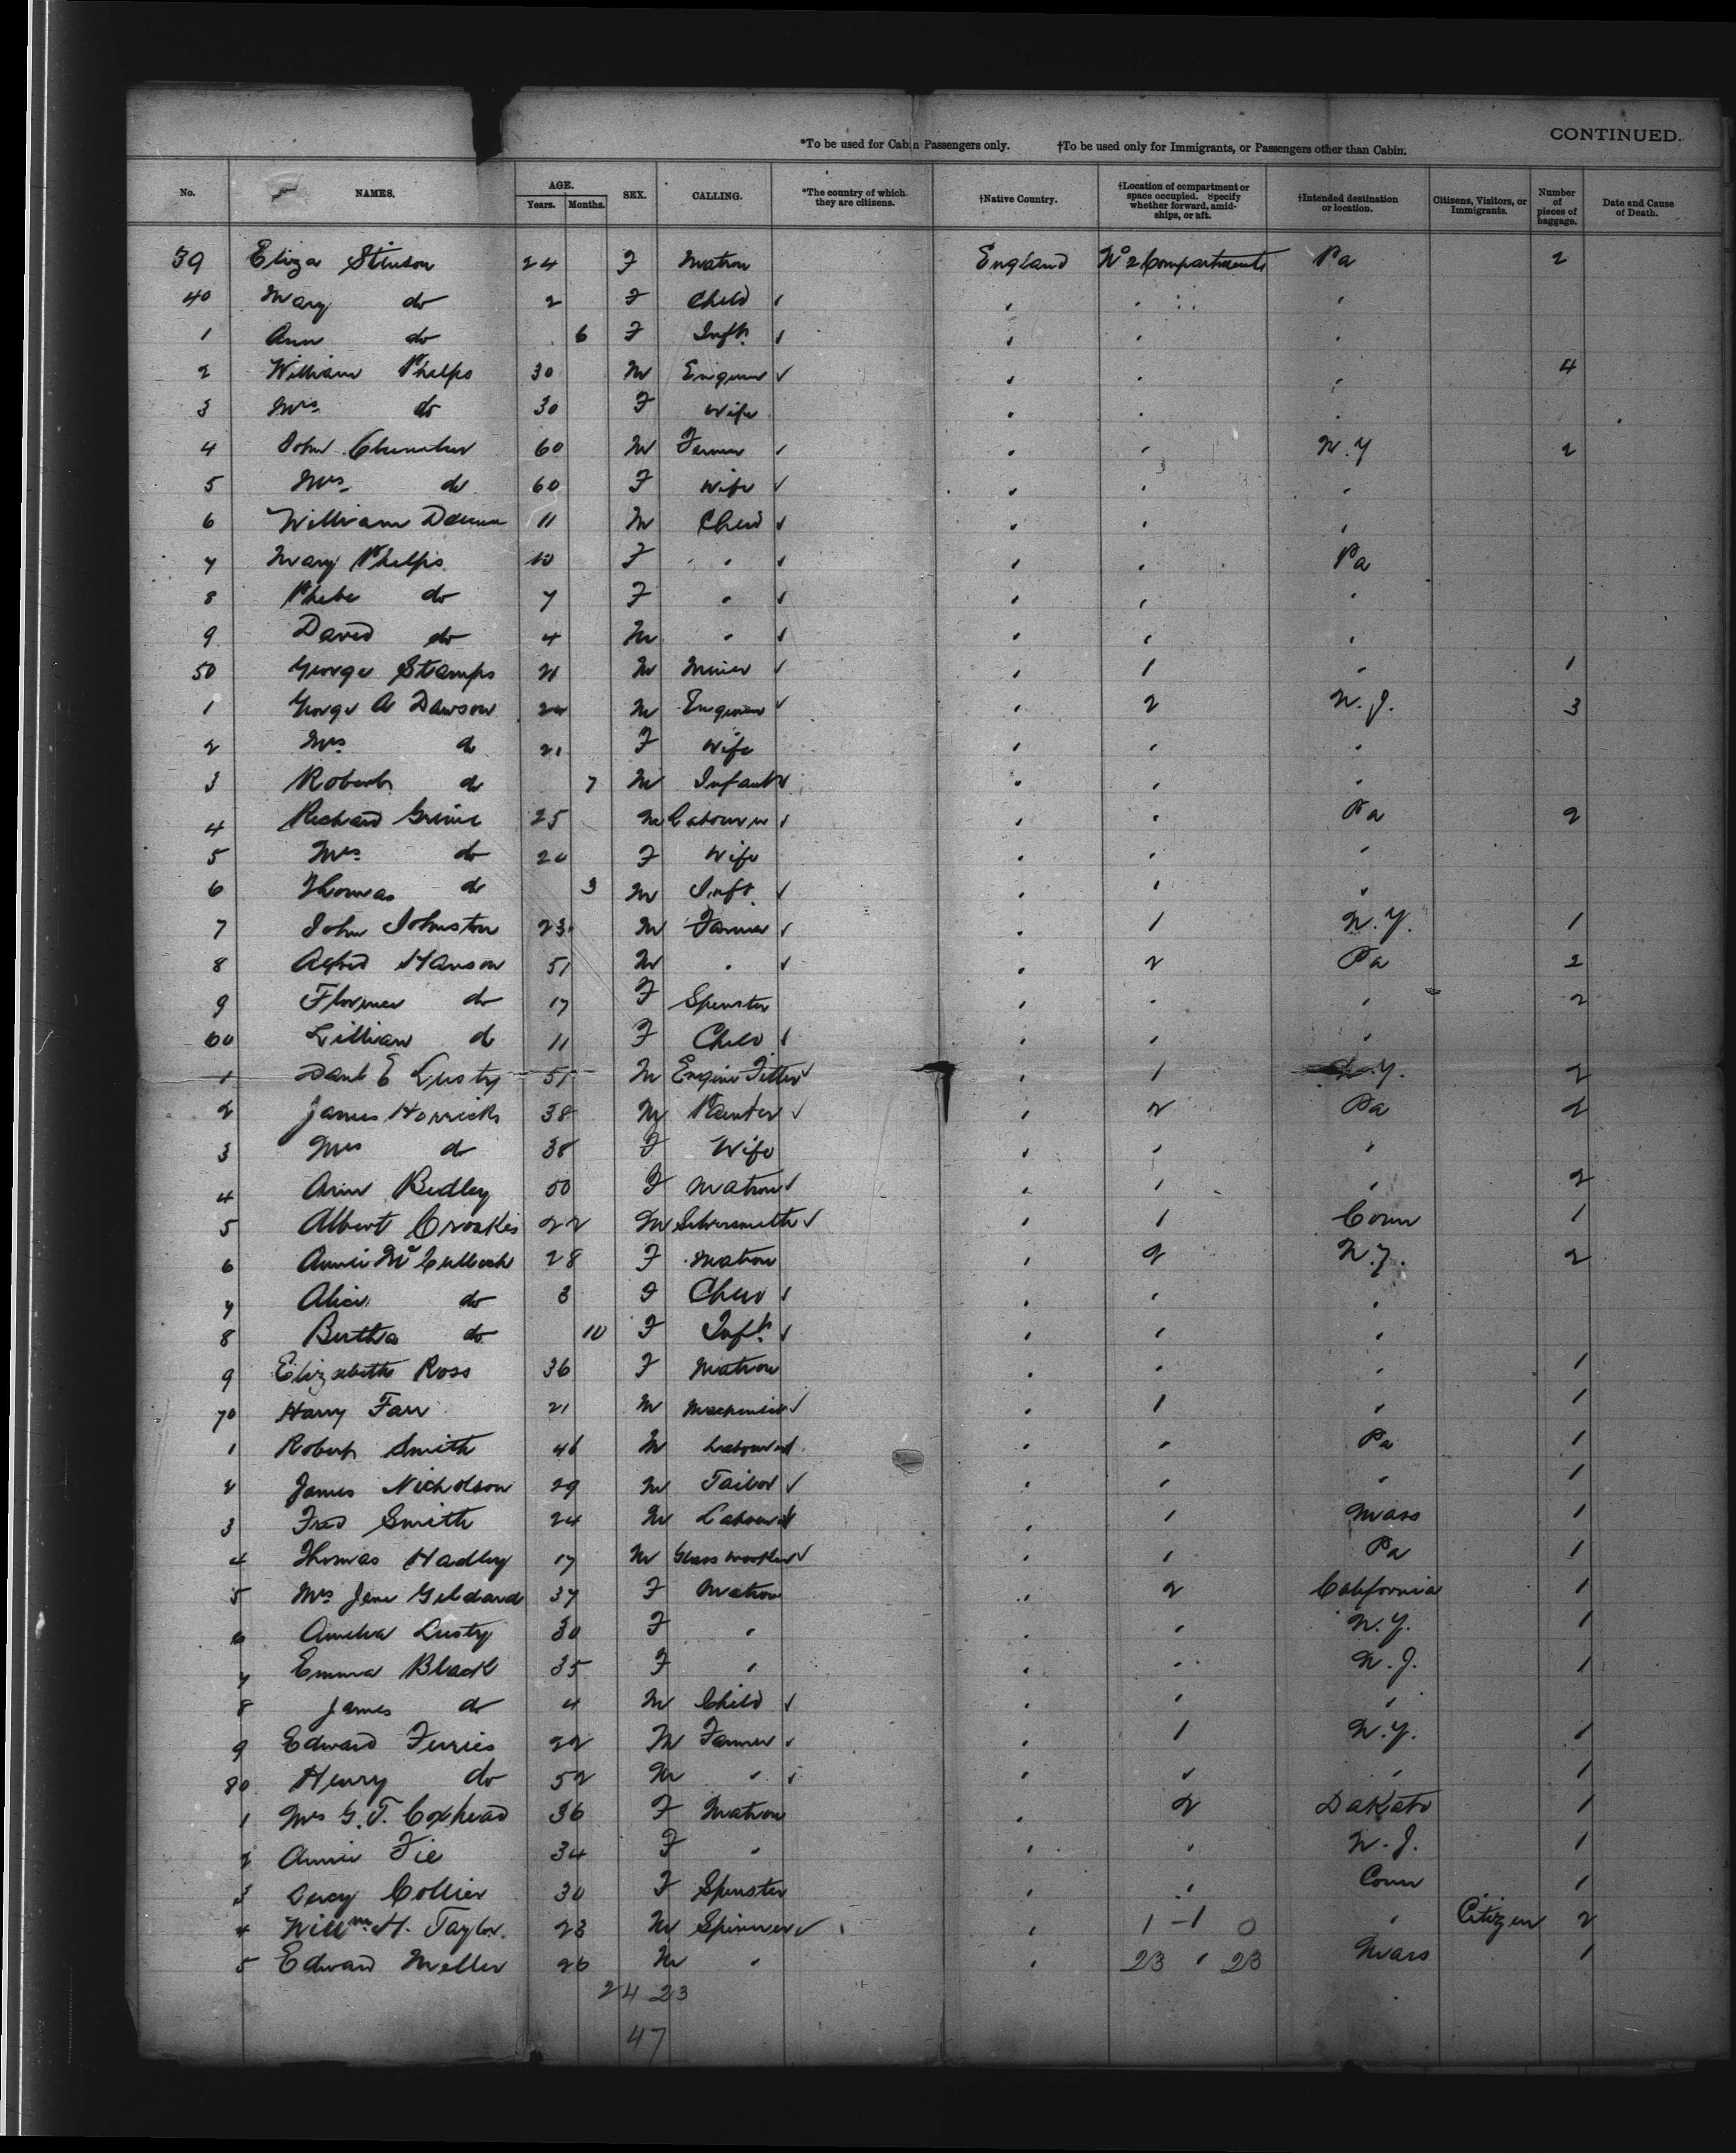 CONTINUED.
*To be used for Cabin Passengers only. †To be used only for Immigrants, or Passengers other than Cabin.
No. NAMES. AGE. Years. Months. SEX. CALLING. *The country of which they are citizens. †Native Country. †Location of compartment or space occupied. Specify whether forward, amidships, or aft. †Intended destination or location. Citizens, Visitors, or Immigrants. Number of pieces of baggage. Date and Cause of Death.
39 Eliza Stinson 24 F Matron England No 2 Compartments Pa 2
40 Mary do 2 F Child
1 Ann do 6 F Inft.
2 William Phelps 30 M Engineer 4
3 Mrs do 30 F Wife
4 John 60 M Farmer N.Y 2
5 Mrs do 60 F Wife
6 William 11 M Child
7 Mary Phelps 10 F " Pa
8 Phebe do 7 F "
9 David do 4 M "
50 George Stamps 21 M Miner " 1 " 1
1 George A Dawson 24 M Engineer " 2 N.J. 3
2 Mrs do 21 F Wife
3 Robert do 7 M Infant
4 Richard 25 M Labourer Pa 2
5 Mrs do 20 F Wife
6 Thomas do 3 M Inft.
7 John Johnston 23 M Farmer " 1 N.Y. 1
8 Alfred Hanson 51 M " " 2 Pa 2
9 Florence do 17 F Spinster 2
60 Lillian do 11 F Child
1 E Lusty 51 M Engine Fitter " 1 N.Y. 2
2 James Horricks 38 M Painter " 2 Pa 2
3 Mrs do 38 F Wife
4 Ann Bedley 50 F Matron 2
5 Albert Croakes 22 M Silversmith " 1 Conn 1
6 Annie McCulloch 28 F Matron " 2 2
7 Alice do 3 F Child
8 Bertha do 10 F Inft.
9 Elizabeth Ross 36 F Matron 1
70 Harry Farr 21 M Machinist " 1 " 1
1 Robert Smith 46 M Labourer Pa 1
2 James Nicholson 29 M Tailor 1
3 Fred Smith 24 M Labourer Mass 1
4 Thomas Hadley 17 M Glass Worker Pa 1
5 Mrs Jane Geldard 37 F Matron " 2 California 1
6 Amelia Lusty 30 F " N.Y. 1
7 Emma Black 35 F " N.J. 1
8 James do 4 M Child
9 Edward Ferries 22 M Farmer " 1 N.Y. 1
80 Henry do 52 M " 1
1 Mrs G. T. Coxhead 36 F Matron " 2 Dakato 1
2 Annie Fie 34 F " N.J. 1
3 Collier 30 F Spinster Conn 1
4 Willm H. Taylor. 23 M Spinner " 1 - 1 0 " Citizen 2
5 Edward Meller 26 M " " 23 " 23 Mass 1
24 23
47